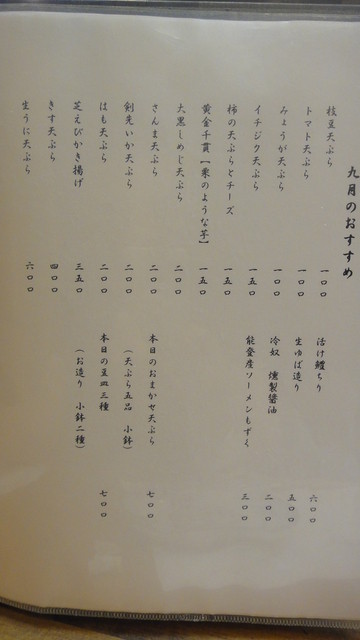 九月のおすすめ
枝豆天ぷら 一〇〇
トマト天ぷら 一〇〇
みょうが天ぷら 一〇〇
イチジク天ぷら 一五〇
柿の天ぷらとチーズ 一五〇
黄金千貫【栗のような芋】 一五〇
大黒しめじ天ぷら 二〇〇
さんま天ぷら 二〇〇
剣先いか天ぷら 二〇〇
はも天ぷら 二〇〇
芝えびかき揚げ 三五〇
きす天ぷら 四〇〇
生うに天ぷら 六〇〇
活け鱧ちり 六〇〇
生ゆば造り 五〇〇
冷奴 燻製醤油 二〇〇
能登産ソーメンもずく 三〇〇
本日のおまかせ天ぷら 七〇〇
(天ぷら五品 小鉢)
本日の豆皿三種 七〇〇
(お造り 小鉢二種)